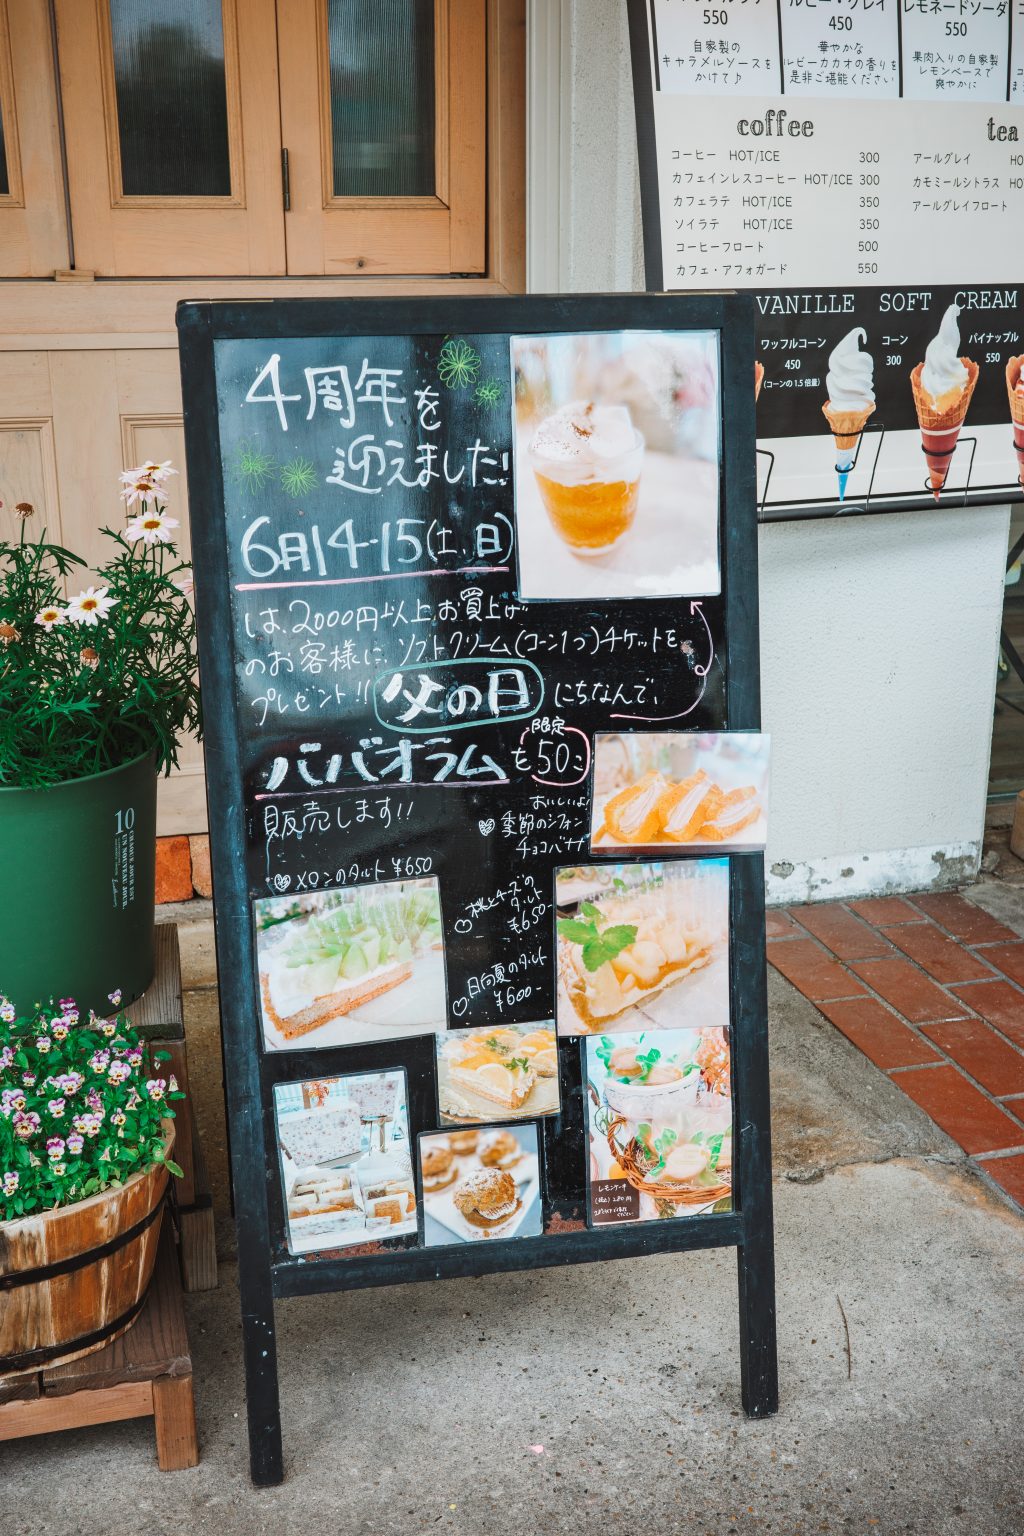 550
自家製の
キャラメルソースを
かけて♪
ルビー・グレイ
450
華やかな
ルビーカカオの香りを
是非ご堪能ください
レモネードソーダ
550
果肉入りの自家製
レモンベースで
爽やかに
coffee
コーヒー HOT/ICE 300
カフェインレスコーヒー HOT/ICE 300
カフェラテ HOT/ICE 350
ソイラテ HOT/ICE 350
コーヒーフロート 500
カフェ・アフォガード 550
tea
アールグレイ HO
カモミールシトラス HO
アールグレイフロート
VANILLE SOFT CREAM
ワッフルコーン
450
(コーンの1.5倍量)
コーン
300
パイナップル
550
4周年を
迎えました!
6月14・15(土、日)
は、2000円以上お買上げ
のお客様に、ソフトクリーム(コーン1つ)チケットを
プレゼント!! 父の日 にちなんで、
ババオラムを 限定 50コ
販売します!!
おいしいよ
季節のシフォン
チョコバナナ
メロンのタルト ¥650
桃とチーズの
タルト
¥650-
日向夏のタルト
¥600-
レモンケーキ
(税込)280円
10
CHAQUE JOUR EST
UN NOUVEAU JOUR.